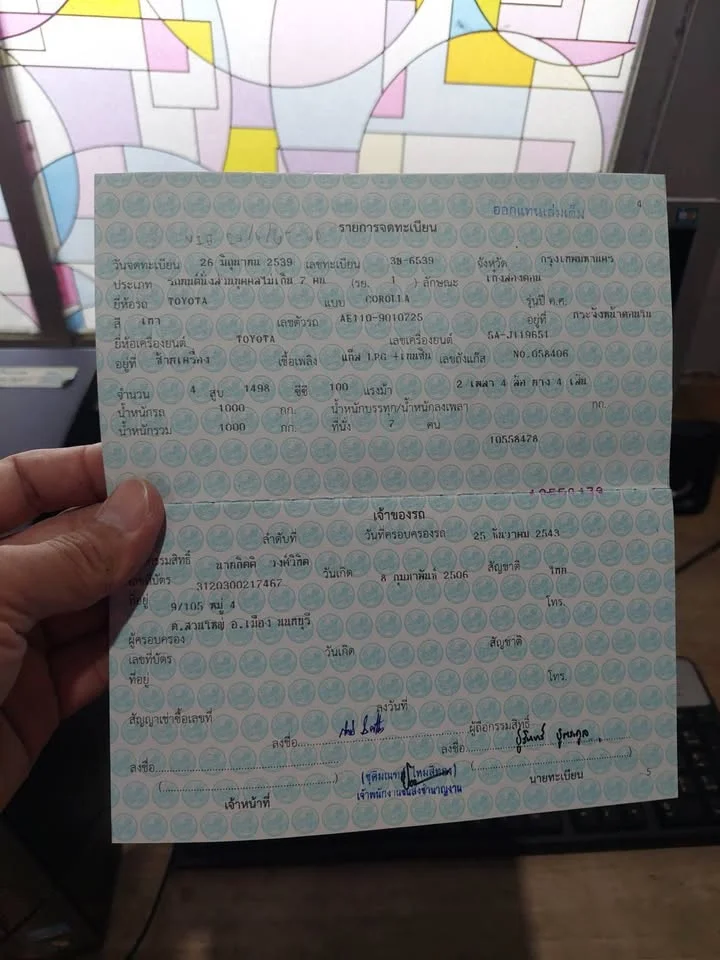 4
ออกแทนเล่มเต็ม
รายการจดทะเบียน
วันจดทะเบียน 26 มิถุนายน 2539 เลขทะเบียน 3ษ-6539 จังหวัด กรุงเทพมหานคร
ประเภท รถยนต์นั่งส่วนบุคคลไม่เกิน 7 คน (รย. 1 ) ลักษณะ เก๋งสองตอน
ยี่ห้อรถ TOYOTA แบบ COROLLA รุ่นปี ค.ศ.
สี เทา เลขตัวรถ AE110-9010725 อยู่ที่ กระจังหน้าตอนริม
ยี่ห้อเครื่องยนต์ TOYOTA เลขเครื่องยนต์ 5A-J119651
อยู่ที่ ซ้ายเครื่อง เชื้อเพลิง แก๊ส LPG +เบนซิน เลขถังแก๊ส NO.058406
จำนวน 4 สูบ 1498 ซีซี 100 แรงม้า 2 เพลา 4 ล้อ ยาง 4 เส้น
น้ำหนักรถ 1000 กก. น้ำหนักบรรทุก/น้ำหนักลงเพลา กก.
น้ำหนักรวม 1000 กก. ที่นั่ง 7 คน
10558478
เจ้าของรถ
ลำดับที่ วันที่ครอบครองรถ 25 ธันวาคม 2543
กรรมสิทธิ์ นายกิตติ วงศ์วิทิต วันเกิด 8 กุมภาพันธ์ 2506 สัญชาติ ไทย
เลขที่บัตร 3120300217467
ที่อยู่ 9/105 หมู่ 4 โทร.
ต.สวนใหญ่ อ.เมือง นนทบุรี
ผู้ครอบครอง วันเกิด สัญชาติ
เลขที่บัตร
ที่อยู่ โทร.
สัญญาเช่าซื้อเลขที่ ลงวันที่
ลงชื่อ ผู้ถือกรรมสิทธิ์
ลงชื่อ ลงชื่อ
เจ้าหน้าที่ เจ้าพนักงานขนส่งชำนาญงาน นายทะเบียน
5